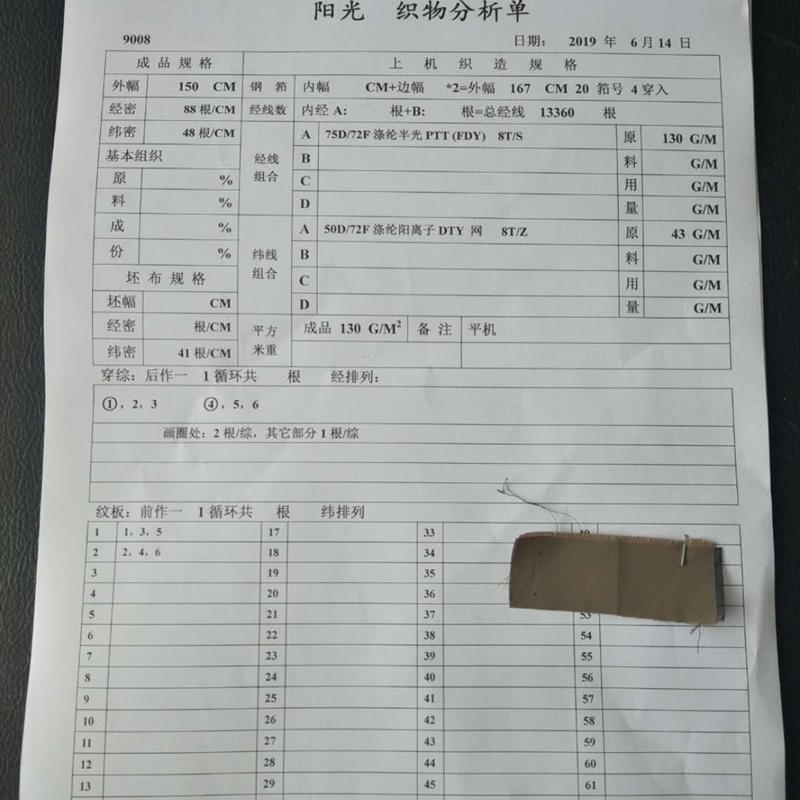 阳光 织物分析单
9008 日期: 2019 年 6月14 日
成品规格 上机织造规格
外幅 150 CM 钢筘 内幅 CM+边幅 *2=外幅 167 CM 20 筘号 4穿入
经密 88根/CM 经线数 内经A: 根+B: 根=总经线 13360 根
纬密 48根/CM 经线组合 A 75D/72F涤纶半光PTT(FDY) 8T/S 原 130 G/M
基本组织 B 料 G/M
原 % C 用 G/M
料 % D 量 G/M
成 % 纬线组合 A 50D/72F涤纶阳离子DTY 网 8T/Z 原 43 G/M
份 % B 料 G/M
坯布规格 C 用 G/M
坯幅 CM D 量 G/M
经密 根/CM 平方米重 成品 130 G/M² 备注 平机
纬密 41根/CM
穿综: 后作一 1循环共 根 经排列:
①, 2, 3 ④, 5, 6
画圈处: 2根/综, 其它部分1根/综
纹板: 前作一 1循环共 根 纬排列
1 1, 3, 5 17 33
2 2, 4, 6 18 34
3 19 35
4 20 36
5 21 37 53
6 22 38 54
7 23 39 55
8 24 40 56
9 25 41 57
10 26 42 58
11 27 43 59
12 28 44 60
13 29 45 61